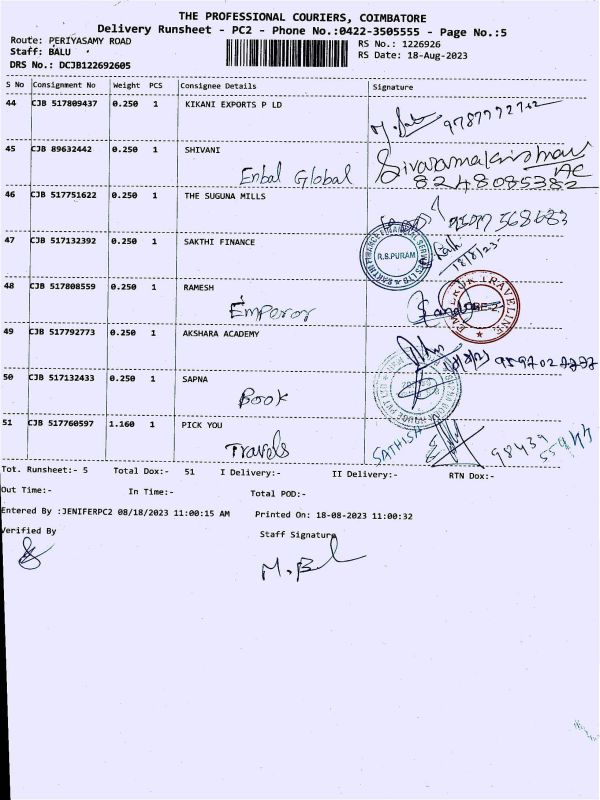 THE PROFESSIONAL COURIERS, COIMBATORE
Delivery Runsheet - PC2 - Phone No.:0422-3505555 - Page No.:5
Route: PERIYASAMY ROAD
RS No.: 1226926
Staff: BALU
RS Date: 18-Aug-2023
DRS No.: DCJB122692605
S No Consignment No Weight PCS Consignee Details Signature
44 CJB 517809437 0.250 1 KIKANI EXPORTS P LD
9787772742
45 CJB 89632442 0.250 1 SHIVANI
Enbal Global
Sivaramakrishnan
8248085382
46 CJB 517751622 0.250 1 THE SUGUNA MILLS
47 CJB 517132392 0.250 1 SAKTHI FINANCE
R.S.PURAM
18/8/23
48 CJB 517808559 0.250 1 RAMESH
Emperor
TRAVELINE
49 CJB 517792773 0.250 1 AKSHARA ACADEMY
50 CJB 517132433 0.250 1 SAPNA
Book
51 CJB 517760597 1.160 1 PICK YOU
Travels
SATHISH
98439
55944
Tot. Runsheet:- 5 Total Dox:- 51 I Delivery:- II Delivery:- RTN Dox:-
Out Time:- In Time:- Total POD:-
Entered By :JENIFERPC2 08/18/2023 11:00:15 AM Printed On: 18-08-2023 11:00:32
Verified By
Staff Signature